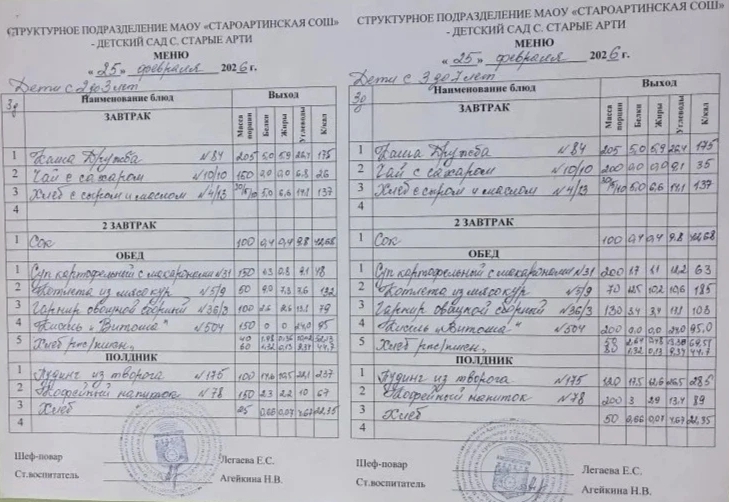 СТРУКТУРНОЕ ПОДРАЗДЕЛЕНИЕ МАОУ «СТАРОАРТИНСКАЯ СОШ»
- ДЕТСКИЙ САД С. СТАРЫЕ АРТИ
МЕНЮ
« 25 » февраля 2026 г.
Дети с 2 до 3 лет
3д Наименование блюд Выход
ЗАВТРАК Масса порции Белки Жиры Углеводы К/кал
1 Каша Дружба №84 205 5,0 5,9 26,4 175
2 Чай с сахаром №10/10 150 0,0 0,0 6,8 26
3 Хлеб с сыром и маслом №4/13 30/5/10 5,0 6,6 14,1 137
4
2 ЗАВТРАК
1 Сок 100 0,4 0,4 9,8 42,68
ОБЕД
1 Суп картофельный с макаронами №31 150
2 Котлета из мяса кур №5/9 50 132
3 Гарнир овощной сборный №36/3 100 79
4 Кисель «Витоша» №504 150 0 0 24,0 95
5 Хлеб рж/пшен. 40 60 1,32 0,13 9,37 44,7
ПОЛДНИК
1 Пудинг из творога №175 100 237
2 Кофейный напиток №78 150 2,3 2,2 10 67
3 Хлеб 0,07 4,67 22,35
4
Шеф-повар Легаева Е.С.
Ст.воспитатель Агейкина Н.В.
СТРУКТУРНОЕ ПОДРАЗДЕЛЕНИЕ МАОУ «СТАРОАРТИНСКАЯ СОШ»
- ДЕТСКИЙ САД С. СТАРЫЕ АРТИ
МЕНЮ
« 25 » февраля 2026 г.
Дети с 3 до 7 лет
3д Наименование блюд Выход
ЗАВТРАК Масса порции Белки Жиры Углеводы К/кал
1 Каша Дружба №84 205 5,0 5,9 26,4 175
2 Чай с сахаром №10/10 200 0,0 0,0 9,1 35
3 Хлеб с сыром и маслом №4/13 30/5/10 5,0 6,6 14,1 137
4
2 ЗАВТРАК
1 Сок 100 0,4 0,4 9,8 42,68
ОБЕД
1 Суп картофельный с макаронами №31 200 1,7 1,1 12,2 63
2 Котлета из мяса кур №5/9 70 12,5 10,2 10,6 185
3 Гарнир овощной сборный №36/3 130 3,4 3,4 103
4 Кисель «Витоша» №504 200 0,0 0,0 24,0 95,0
5 Хлеб рж/пшен. 50 60 2,64 0,48 1,32 0,13 9,37 44,7
ПОЛДНИК
1 Пудинг из творога №175 120 17,5 12,6 26,5 285
2 Кофейный напиток №78 200 3 2,9 13,4 89
3 Хлеб 50 0,66 0,07 4,67 22,35
4
Шеф-повар Легаева Е.С.
Ст.воспитатель Агейкина Н.В.